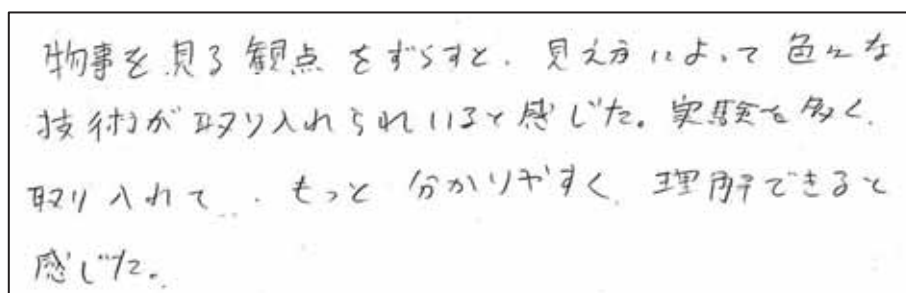 物事を見る観点をずらすと、見え方によって色々な
技術が取り入れられいると感じた。実験も多く、
取り入れて、もっと分かりやすく、理解できると
感じた。